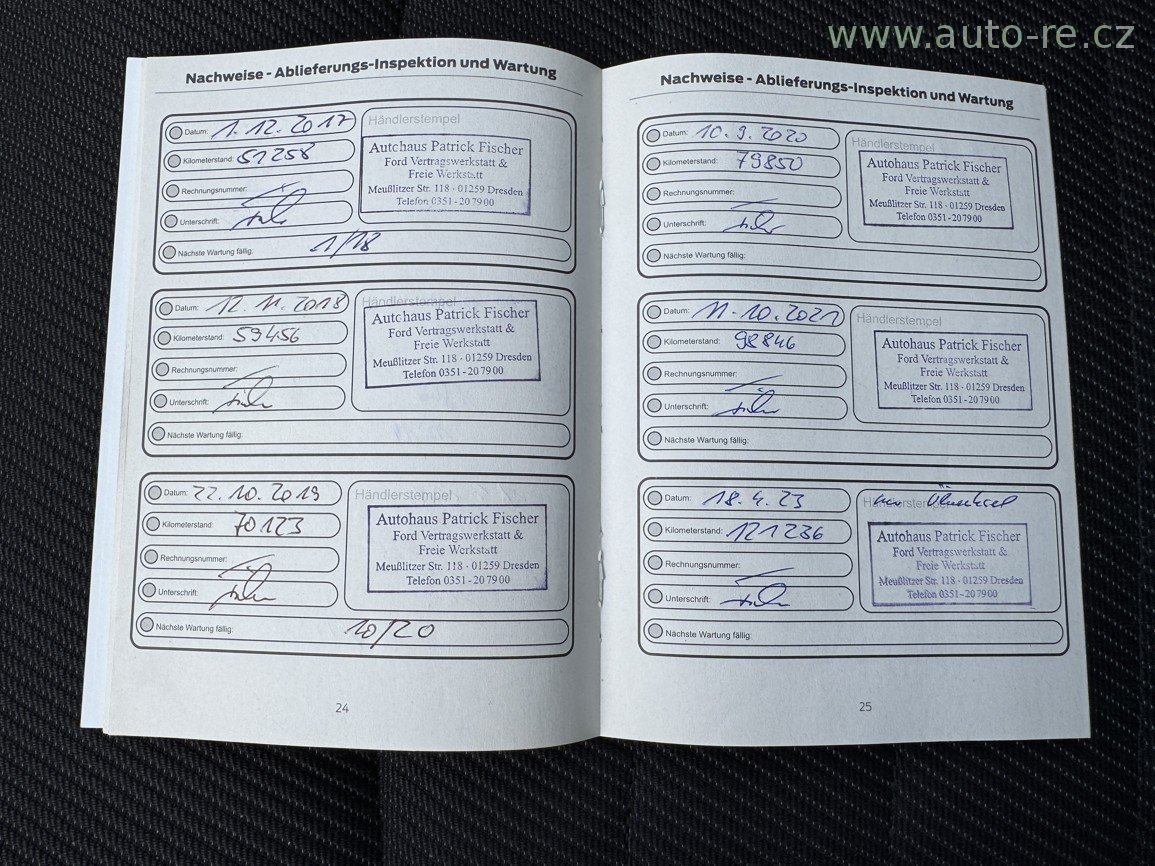 www.auto-re.cz
Nachweise - Ablieferungs-Inspektion und Wartung
Datum: 1.12.2017
Kilometerstand: 51258
Rechnungsnummer:
Unterschrift:
Nächste Wartung fällig: 1/18
Händlerstempel
Autohaus Patrick Fischer
Ford Vertragswerkstatt &
Freie Werkstatt
Meußlitzer Str. 118 · 01259 Dresden
Telefon 0351-207900
Datum: 12.11.2018
Kilometerstand: 59456
Rechnungsnummer:
Unterschrift:
Nächste Wartung fällig:
Händlerstempel
Autohaus Patrick Fischer
Ford Vertragswerkstatt &
Freie Werkstatt
Meußlitzer Str. 118 · 01259 Dresden
Telefon 0351-207900
Datum: 22.10.2019
Kilometerstand: 70123
Rechnungsnummer:
Unterschrift:
Nächste Wartung fällig: 10/20
Händlerstempel
Autohaus Patrick Fischer
Ford Vertragswerkstatt &
Freie Werkstatt
Meußlitzer Str. 118 · 01259 Dresden
Telefon 0351-207900
24
Nachweise - Ablieferungs-Inspektion und Wartung
Datum: 10.9.2020
Kilometerstand: 79850
Rechnungsnummer:
Unterschrift:
Nächste Wartung fällig:
Händlerstempel
Autohaus Patrick Fischer
Ford Vertragswerkstatt &
Freie Werkstatt
Meußlitzer Str. 118 · 01259 Dresden
Telefon 0351-207900
Datum: 11.10.2021
Kilometerstand: 98846
Rechnungsnummer:
Unterschrift:
Nächste Wartung fällig:
Händlerstempel
Autohaus Patrick Fischer
Ford Vertragswerkstatt &
Freie Werkstatt
Meußlitzer Str. 118 · 01259 Dresden
Telefon 0351-207900
Datum: 18.4.23
Kilometerstand: 121236
Rechnungsnummer:
Unterschrift:
Nächste Wartung fällig:
Händlerstempel
nur Ölwechsel
Autohaus Patrick Fischer
Ford Vertragswerkstatt &
Freie Werkstatt
Meußlitzer Str. 118 · 01259 Dresden
Telefon 0351-207900
25